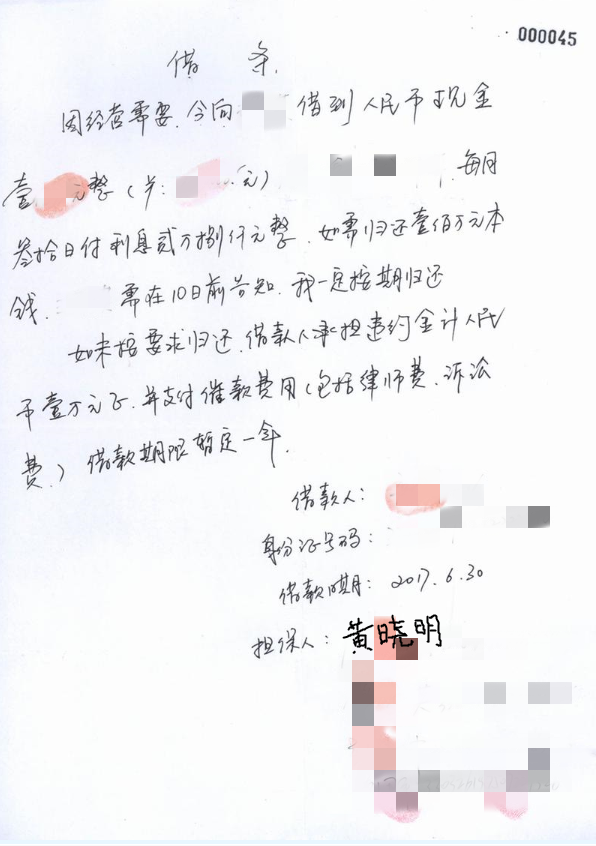 000045
借 条
因经营需要,今向 借到人民币现金
壹 元整(¥: 元) ,每月
叁拾日付利息贰万捌仟元整,如需归还壹佰万元本
钱, 需在10日前告知,我一定按期归还
如未按要求归还,借款人承担违约金计人民
币壹万元正,并支付催款费用(包括律师费、诉讼
费)借款期限暂定一年.
借款人:
身份证号码:
借款日期: 2017.6.30
担保人:黄晓明